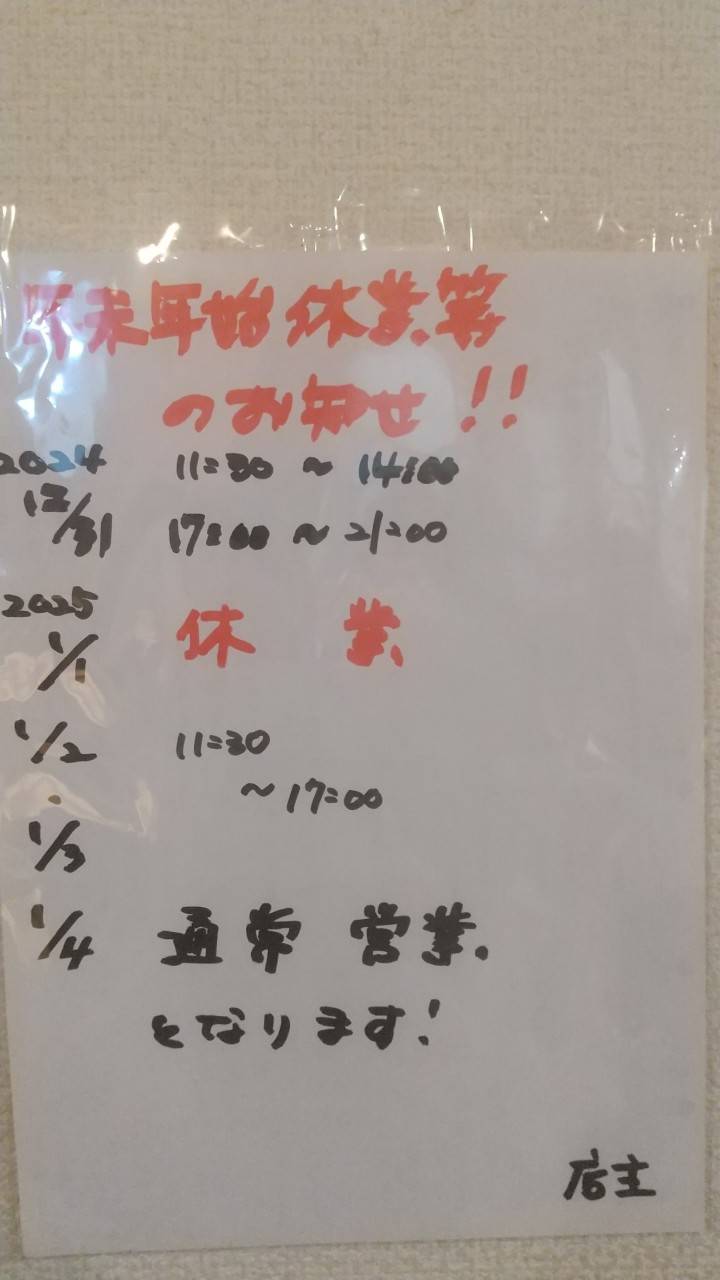 年末年始休業等
のお知せ!!
2024 11:30 ~ 14:00
12/31 17:00 ~ 21:00
2025
1/1 休 業
1/2 11:30
・ ~17:00
1/3
1/4 通常 営業
となります!
店主